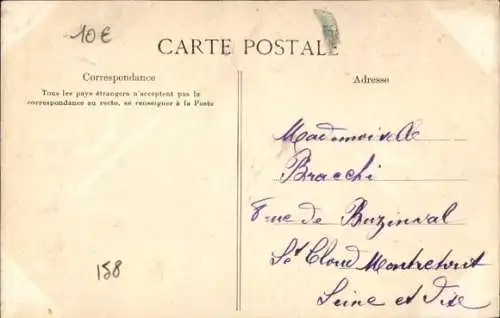 10€
CARTE POSTALE
Correspondance
Tous les pays étrangers n'acceptent pas la
correspondance au recto, se renseigner à la Poste
158
Adresse
Mademoiselle
Bracchi
8 rue de Buzinval
St Cloud Montretout
Seine et Oise